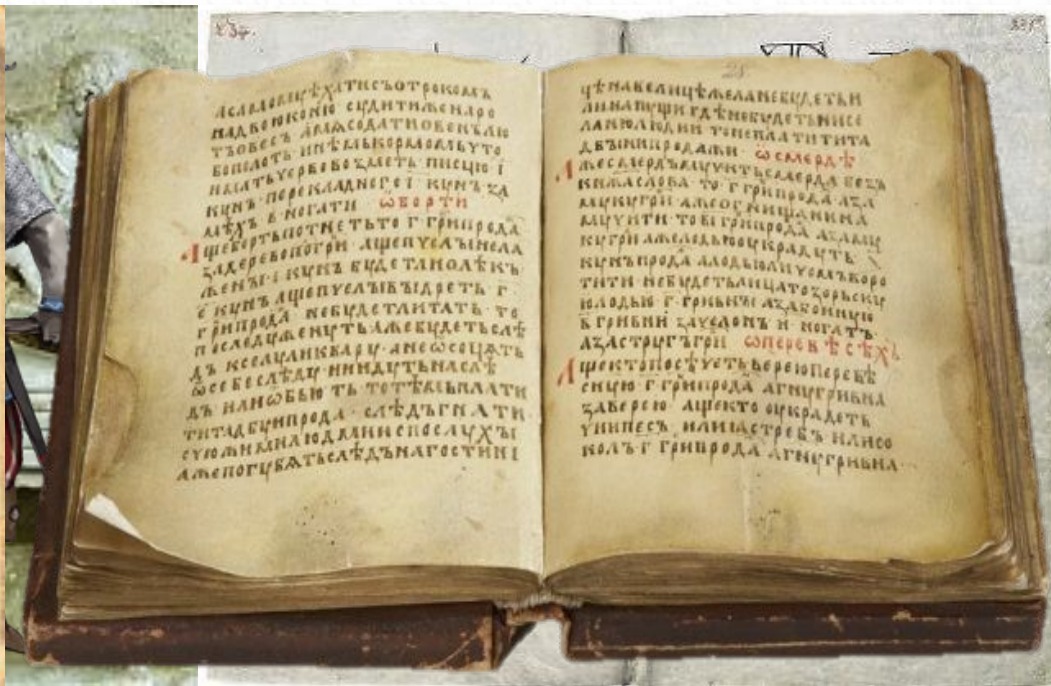 АСАМОМУѢХАТИСЪОТРОКОМЪ
НАДВОЮКОНЮ СУДИТИЖЕНАРО
ТЪОВЕСЪ АМѦСОДАТИОВЕНЪЛЮ
БОПОЛОТЬ ИНѢМЬКОРМОМЬ
ВОЗМЕТЬ ПИСЦЮ І
КУНЪ ПЕРЕКЛАДНОГЕ І КУНЪ ЗА
МѢХЪ В НОГАТИ ѠБОРТИ
АЩЕБОРТЬПОТНЕТЬТО Г ГРИПРОДА
ЗАДЕРЕВОПОГРИ АЩЕПЧЕЛЫНЕЛА
ЖЕНЫ І КУНЪ БУДЕТЛИОЛѢКЪ
Е КУНЪ АЩЕПЧЕЛЫВЫДРЕТЬ Г
ГРИПРОДА НЕБУДЕТЛИТАТЬ ТО
ПОСЛЕДУЖЕНУТЬАЖЕБУДЕТЬСЛѢ
ДЪ КСЕЛУИЛИКВАРУ АНЕѠСОЦѦТЬ
ѠСЕБЕСЛѢДУ НИИДУТЬНАСЛѢ
ДЪ ИЛИѠБЬЮ ТЬ ТОТѢМЪПЛАТИ
ТИТАДБУИПРОДА СЛѢДЪГНАТИ
СЧЮЖИМИЛЮДМИИСПОСЛУХЫ
АЖЕПОГУБѦТЬСЛѢДЪНАГОСТИНІ
28
ЦѢНАВЕЛИЦѢЖЕЛАНЕБУДЕТЬИ
ЛИНАПУЩИГДѢНЕБУДЕТЬНИСЕ
ЛАНИЛЮДИИ ТОНЕПЛАТИТИТА
ДВЫНИПРОДАЖИ ѠСМЕРДѢ
АЖЕСМЕРДЪМУЧИТЬСМЕРДА БЕЗЪ
КНѦЖАСЛОВА ТО Г ГРИПРОДА АЗА
МУКУГРИ АЖЕОГНИЩАНИНА
МУЧИТИ ТОВІ ГРИПРОДА АЗАМУ
КУГРИ АЖЕЛОДЬЮОУКРАДУТЬ
КУНЪПРОДА АЛОДЬЮЛИЧЕМЬВОРО
ТИТИ НЕБУДЕТЬЛИЦАТОЗАМОРЬСКУ
ЮЛОДЬЮ Г ГРИВНЫ АЗАБОИНУЮ
В ГРИВНИ ЗАЧЕЛОНЪ И НОГАТЪ
АЗАСТРУГЪГРИ ѠПЕРЕВѢСѢХЪ
АЩЕКТОПОСѢЧЕТЬВЕРЕЮПЕРЕВѢ
СНУЮ Г ГРИПРОДА АГНУГРИВНА
ЗАВЕРЕЮ АЩЕКТО ОУКРАДЕТЬ
ЧИИПЕСЪ ИЛИЯСТРЕБЪ ИЛИСО
КОЛЪ Г ГРИПРОДА АГНУГРИВНА